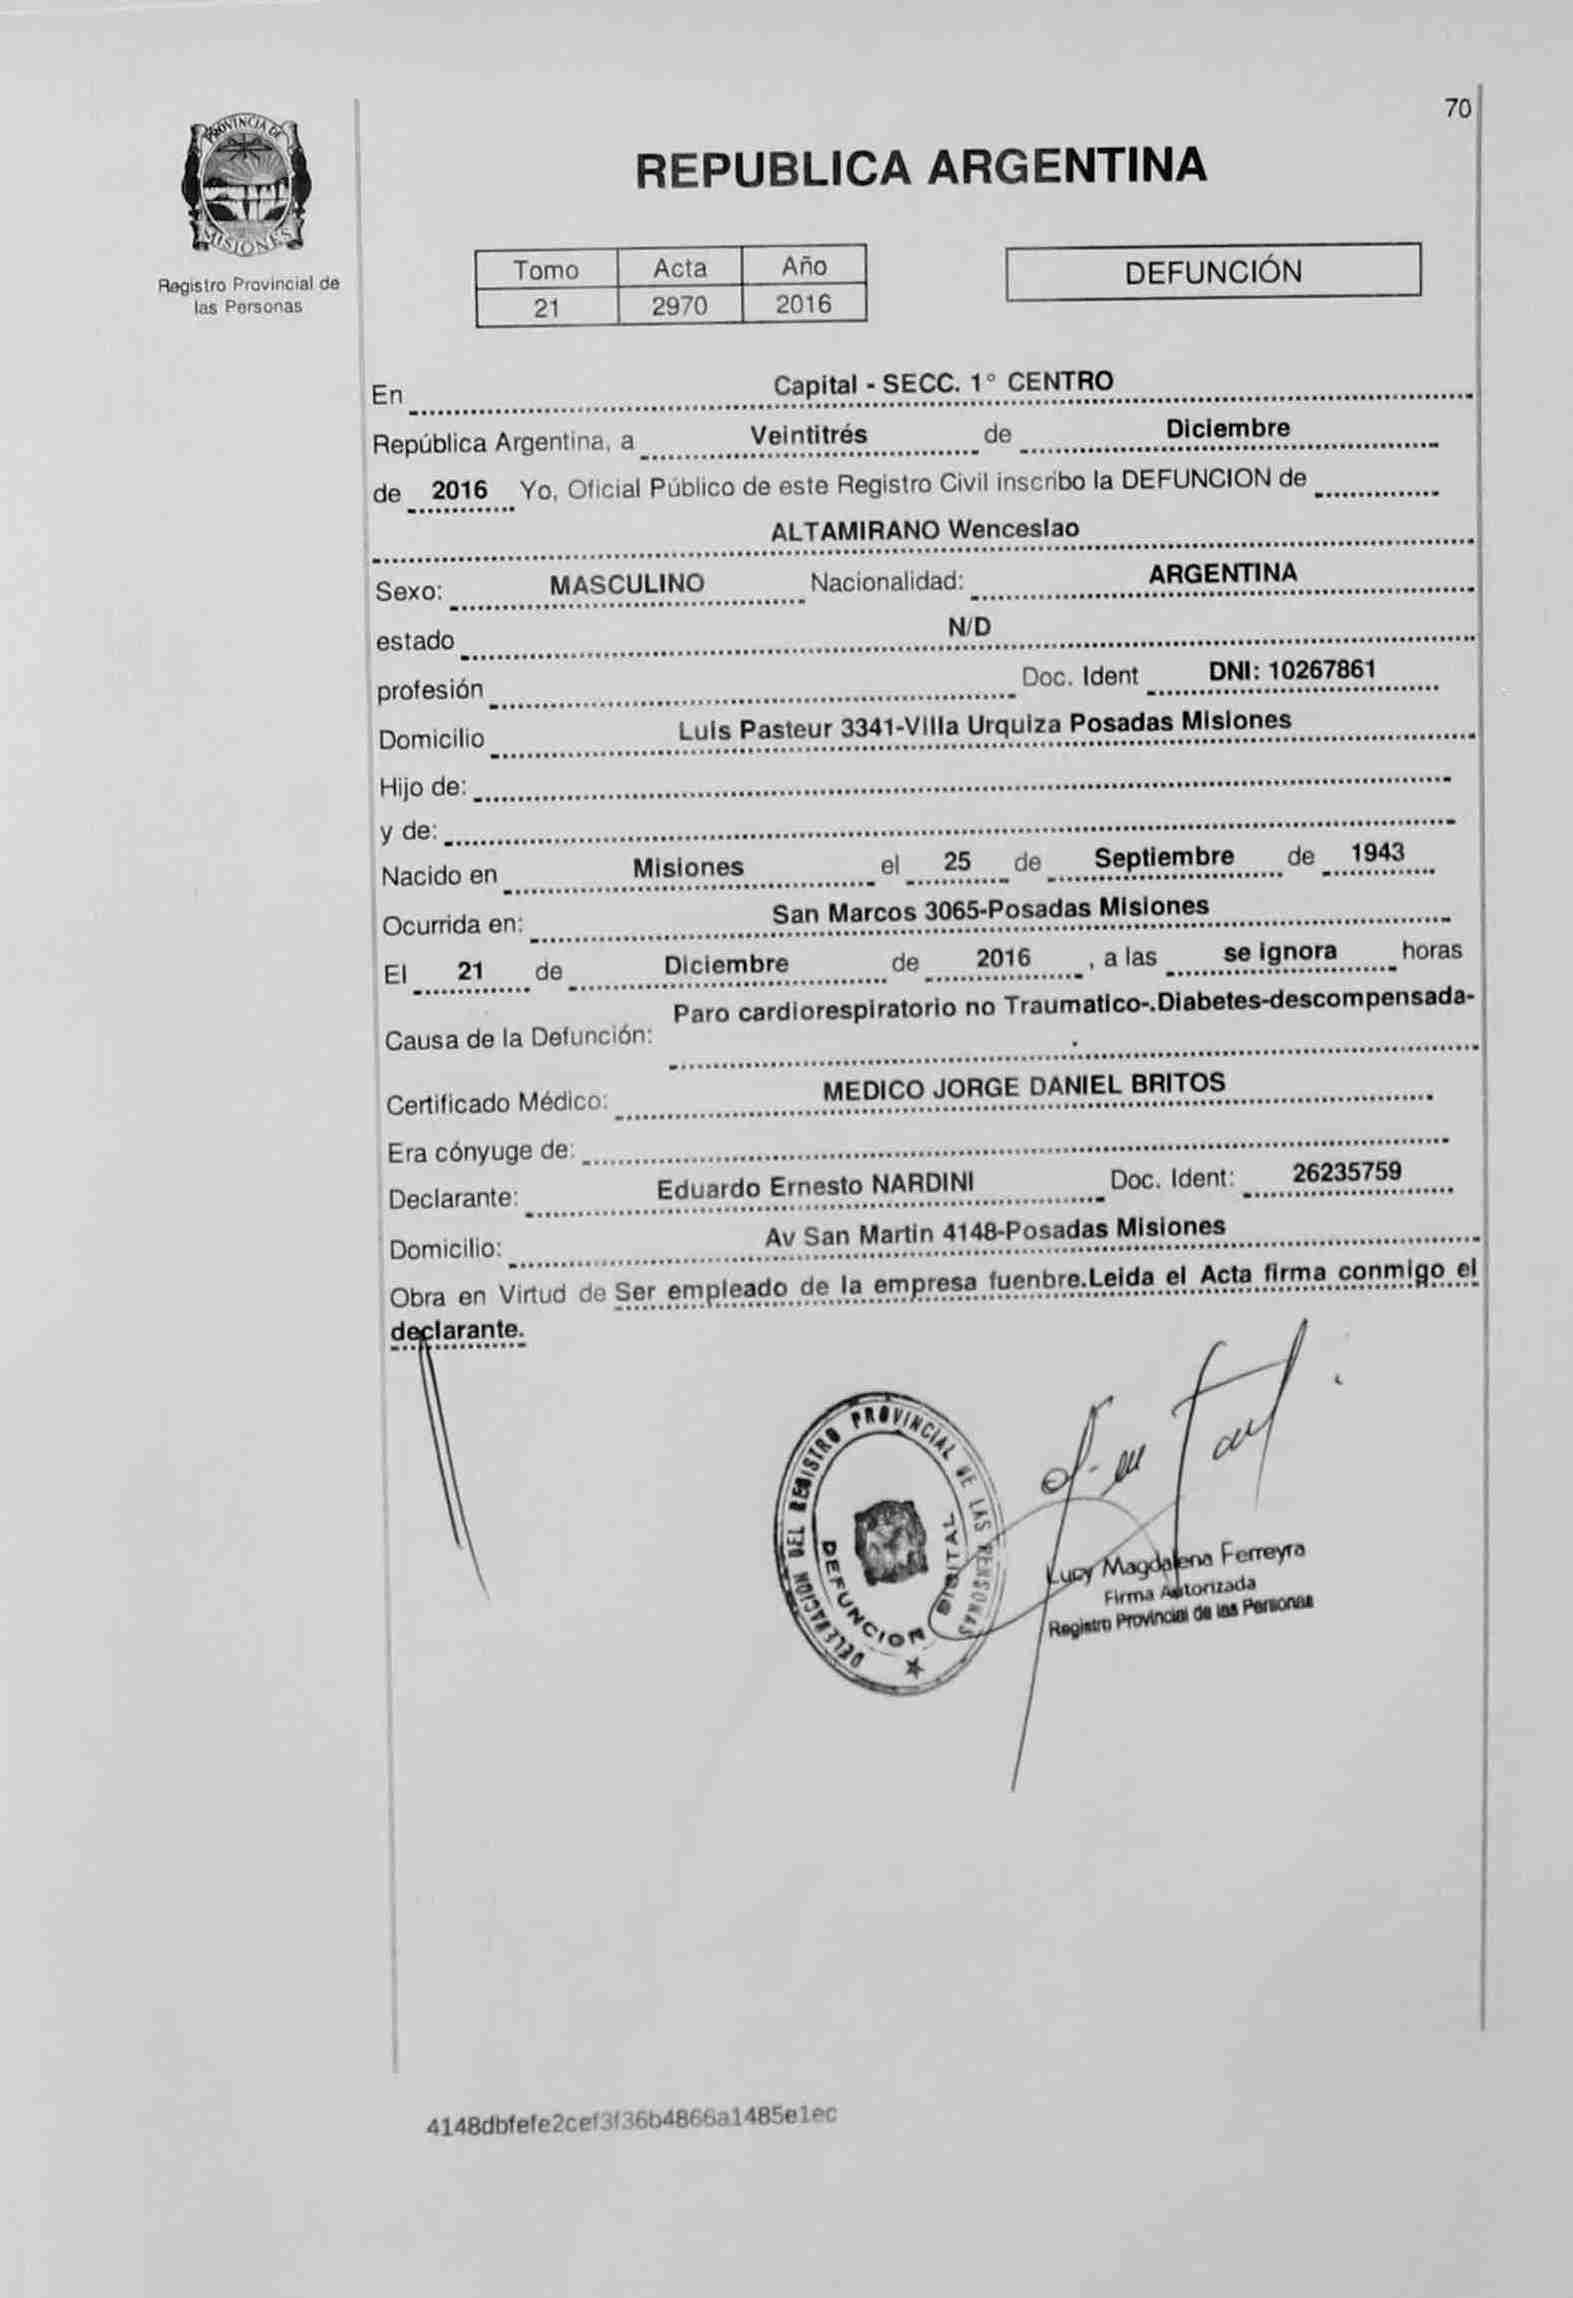 70
PROVINCIA DE
MISIONES
Registro Provincial de
las Personas
REPUBLICA ARGENTINA
Tomo Acta Año
21 2970 2016
DEFUNCIÓN
En Capital - SECC. 1° CENTRO
República Argentina, a Veintitrés de Diciembre
de 2016 Yo, Oficial Público de este Registro Civil inscribo la DEFUNCION de
ALTAMIRANO Wenceslao
Sexo: MASCULINO Nacionalidad: ARGENTINA
estado N/D
profesión Doc. Ident DNI: 10267861
Domicilio Luis Pasteur 3341-Villa Urquiza Posadas Misiones
Hijo de:
y de:
Nacido en Misiones el 25 de Septiembre de 1943
Ocurrida en: San Marcos 3065-Posadas Misiones
El 21 de Diciembre de 2016 , a las se ignora horas
Causa de la Defunción: Paro cardiorespiratorio no Traumatico-.Diabetes-descompensada-
.
Certificado Médico: MEDICO JORGE DANIEL BRITOS
Era cónyuge de:
Declarante: Eduardo Ernesto NARDINI Doc. Ident: 26235759
Domicilio: Av San Martin 4148-Posadas Misiones
Obra en Virtud de Ser empleado de la empresa fuenbre.Leida el Acta firma conmigo el
declarante.
DELEGACION DEL REGISTRO PROVINCIAL DE LAS PERSONAS
DEFUNCION DIGITAL
Lucy Magdalena Ferreyra
Firma Autorizada
Registro Provincial de las Personas
4148dbfefe2cef3f36b4866a1485e1ec